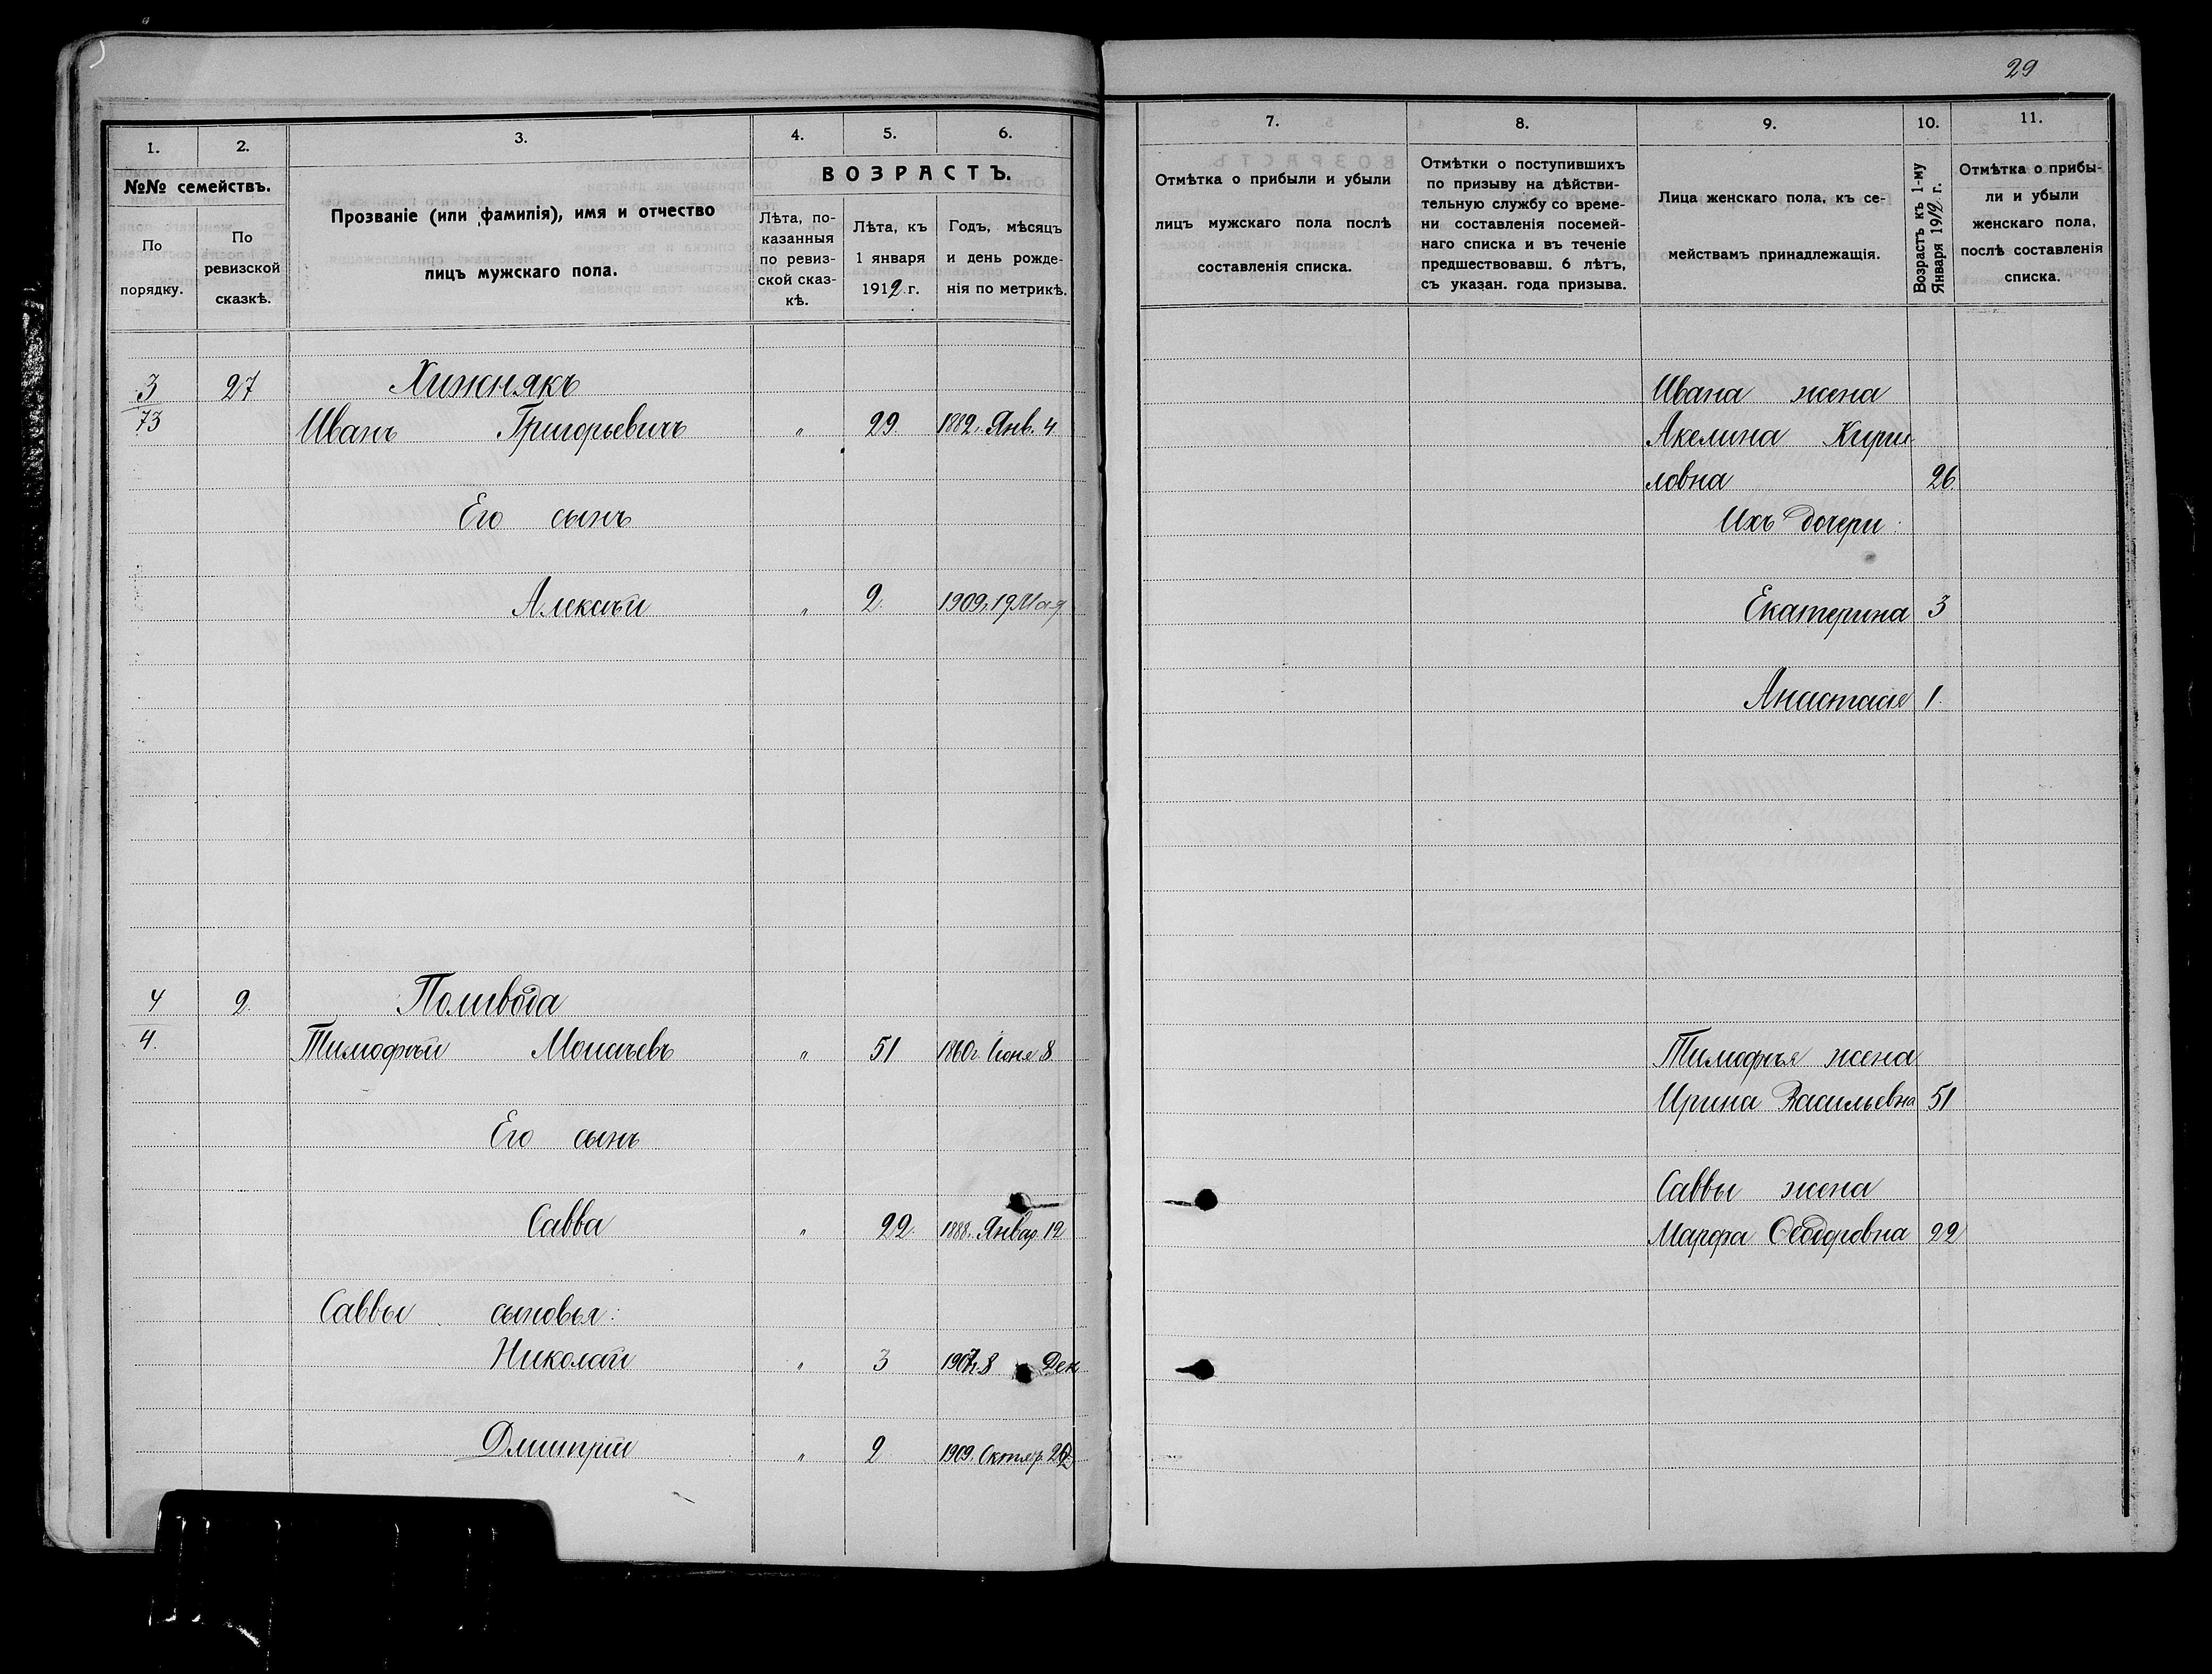 29
1.
2.
3.
4.
5.
6.
№№ семействъ.
По порядку.
По ревизской сказкѣ.
Прозваніе (или фамилія), имя и отчество
лицъ мужскаго пола.
ВОЗРАСТЪ.
Лѣта, по-
казанныя
по ревиз-
ской сказ-
кѣ.
Лѣта, къ
1 января
1912 г.
Годъ, мѣсяцъ
и день рожде-
нія по метрикѣ.
3 27 Хижнякъ
73 Иванъ Григорьевичъ " 29 1882. Янв. 4
Его сынъ
Алексѣй " 2. 1909г. 19 Мая
4 2 Поливода
4. Тимофѣй Моисѣевъ " 51 1860г. Іюня 8
Его сынъ
Савва " 22. 1888. Январ. 12
Саввы сыновья:
Николай " 3 1907г. 8 Дек
Дмитрій " 2 1909. Октяр.
7.
8.
9.
10.
11.
Отмѣтка о прибыли и убыли
лицъ мужскаго пола послѣ
составленія списка.
Отмѣтки о поступившихъ
по призыву на дѣйстви-
тельную службу со време-
ни составленія посемей-
наго списка и въ теченіе
предшествовавш. 6 лѣтъ,
съ указан. года призыва.
Лица женскаго пола, къ се-
мействамъ принадлежащія.
Возрастъ къ 1-му
Января 1912 г.
Отмѣтка о прибы-
ли и убыли
женскаго пола,
послѣ составленія
списка.
Ивана жена
Акелина Кири
ловна 26.
Ихъ дочери:
Екатерина 3
Анастасія 1.
Тимофѣя жена
Ирина Васильевна 51
Саввы жена
Марфа Ѳеодоровна 22